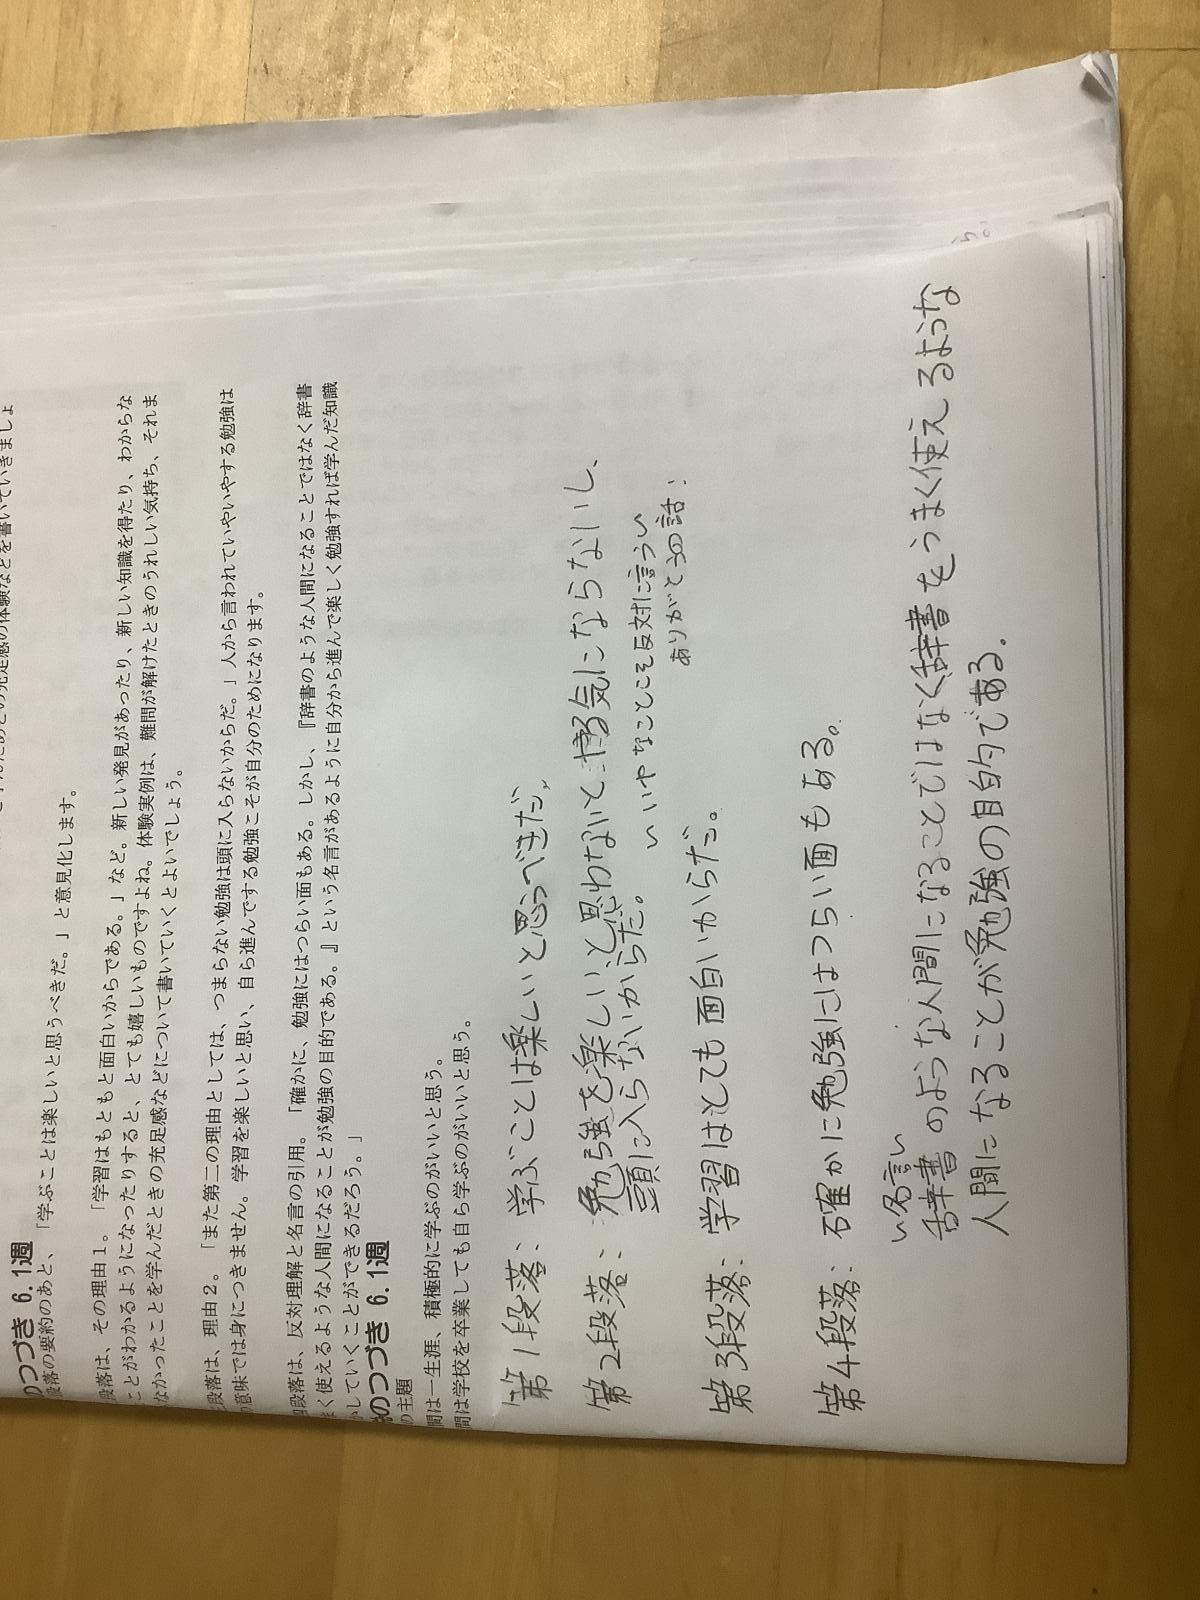 んだあとの充足感の体験などを書いていきましょ
のつづき 6.1週
段落の要約のあと、「学ぶことは楽しいと思うべきだ。」と意見化します。
段落は、その理由1。「学習はもともと面白いからである。」など。新しい発見があったり、新しい知識を得たり、わからな
ことがわかるようになったりすると、とても嬉しいものですよね。体験実例は、難問が解けたときのうれしい気持ち、それま
なかったことを学んだときの充足感などについて書いていくとよいでしょう。
段落は、理由2。「また第二の理由としては、つまらない勉強は頭に入らないからだ。」人から言われていやいやする勉強は
意味では身につきません。学習を楽しいと思い、自ら進んでする勉強こそが自分のためになります。
段落は、反対理解と名言の引用。「確かに、勉強にはつらい面もある。しかし、『辞書のような人間になることではなく辞書
く使えるような人間になることが勉強の目的である。』という名言があるように自分から進んで楽しく勉強すれば学んだ知識
かしていくことができるだろう。」
のつづき 6.1週
の主題
間は一生涯、積極的に学ぶのがいいと思う。
間は学校を卒業しても自ら学ぶのがいいと思う。
第1段落: 学ぶことは楽しいと思うべきだ。
第2段落: 勉強を楽しいと思わないとやる気にならないし、
頭に入らないからだ。
いやなことこそ反対に言う
ありがとうの話:
第3段落: 学習はとても面白いからだ。
第4段落: 確かに勉強にはつらい面もある。
名言
辞書のような人間になることではなく辞書をうまく使えるような
人間になることが勉強の目的である。